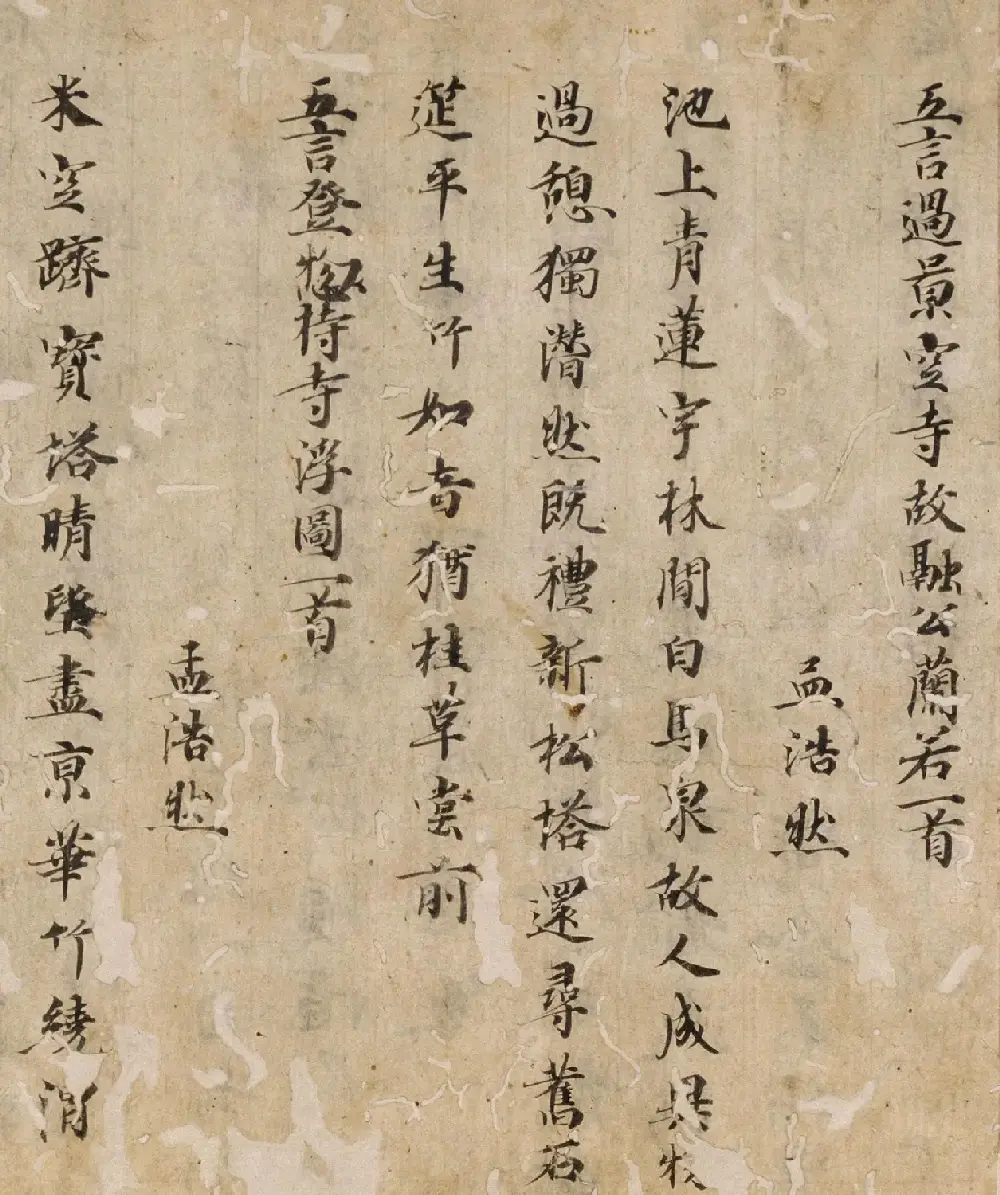 五言過景空寺故融公蘭若一首
孟浩然
池上青蓮宇林間白馬泉故人成異物
過憩獨潛然既禮新松塔還尋舊石
筵平生竹如意猶桂草堂前
五言登惣持寺浮圖一首
孟浩然
米空躋寶塔晴望盡京華竹繞渭